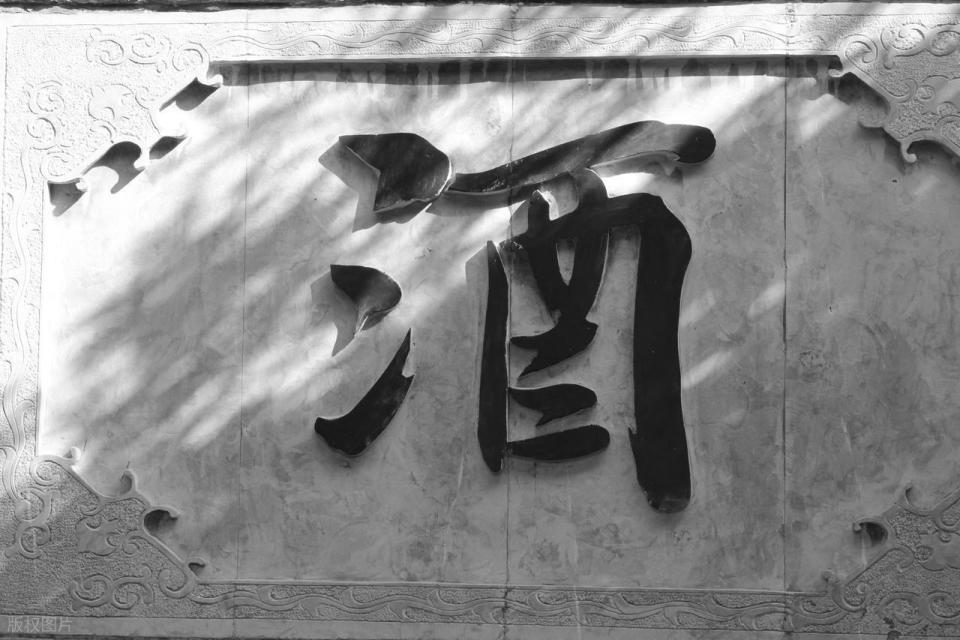 酒
版权图片